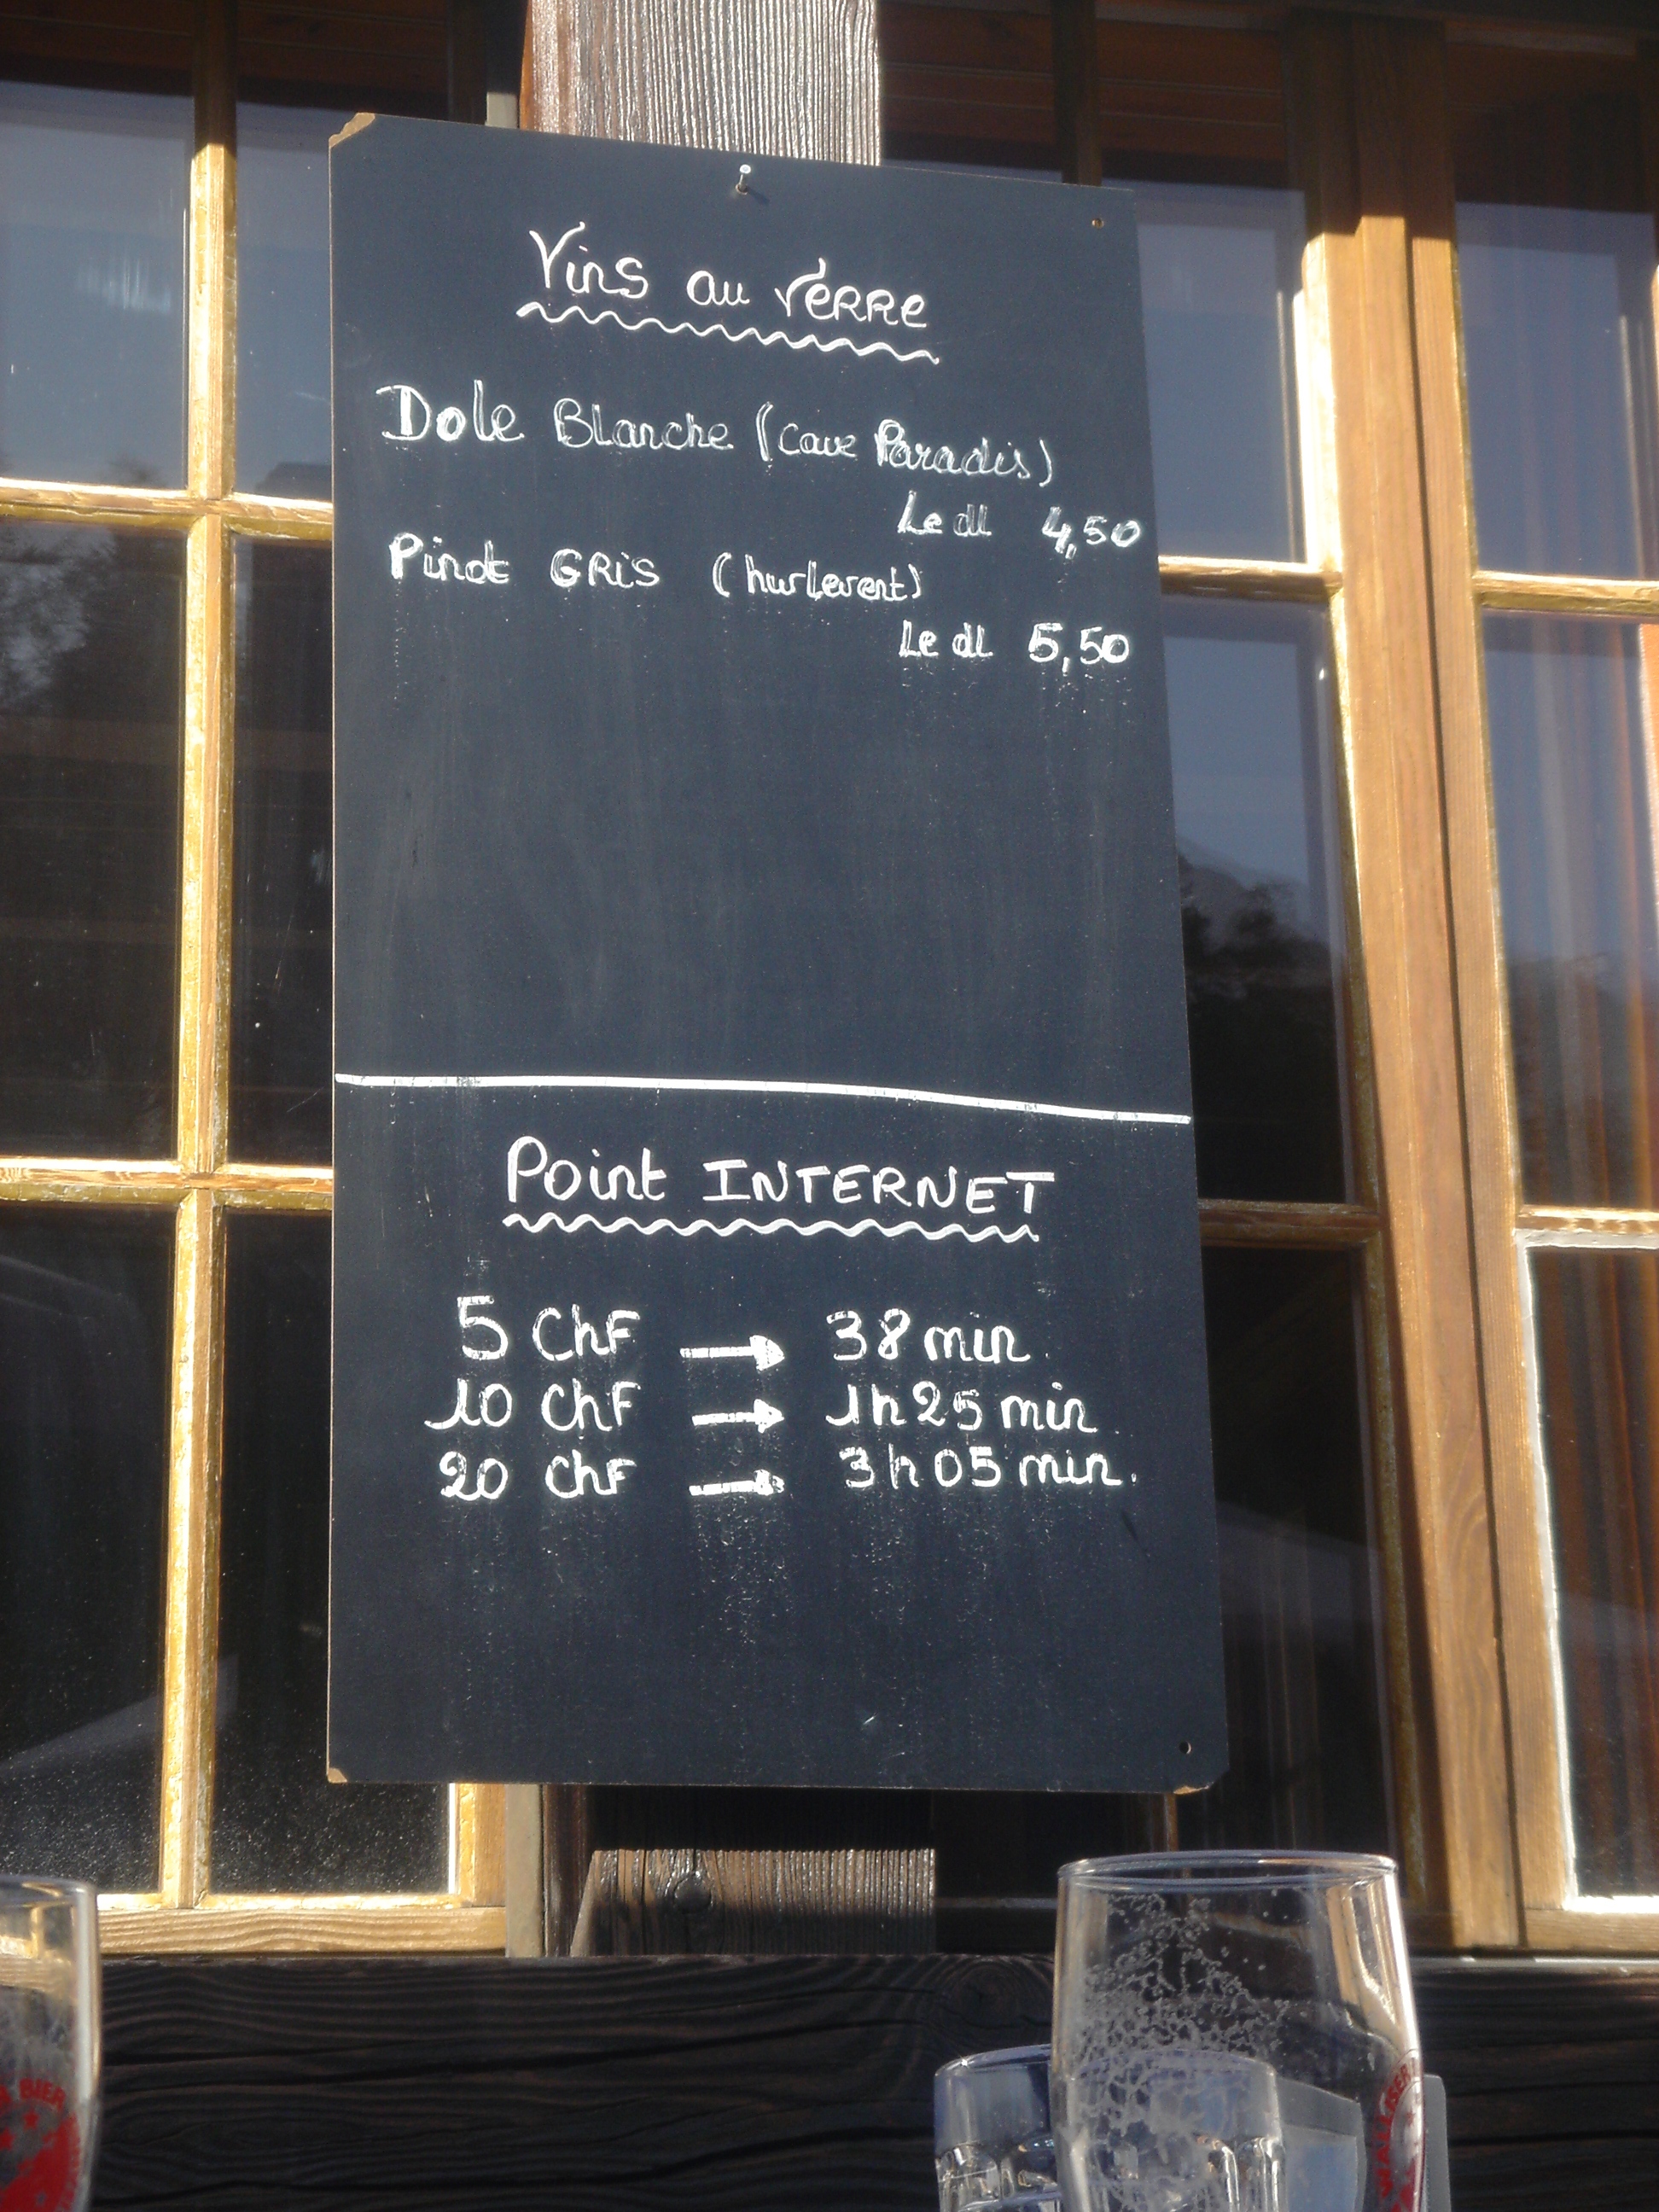 Vins au verre
Dole Blanche (Cave Paradis)
Le dl 4,50
Pinot GRis (hurlevent)
Le dl 5,50
Point INTERNET
5 ChF → 38 min.
10 ChF → 1h25 min.
20 ChF → 3h05 min.
BIER
WALLISER